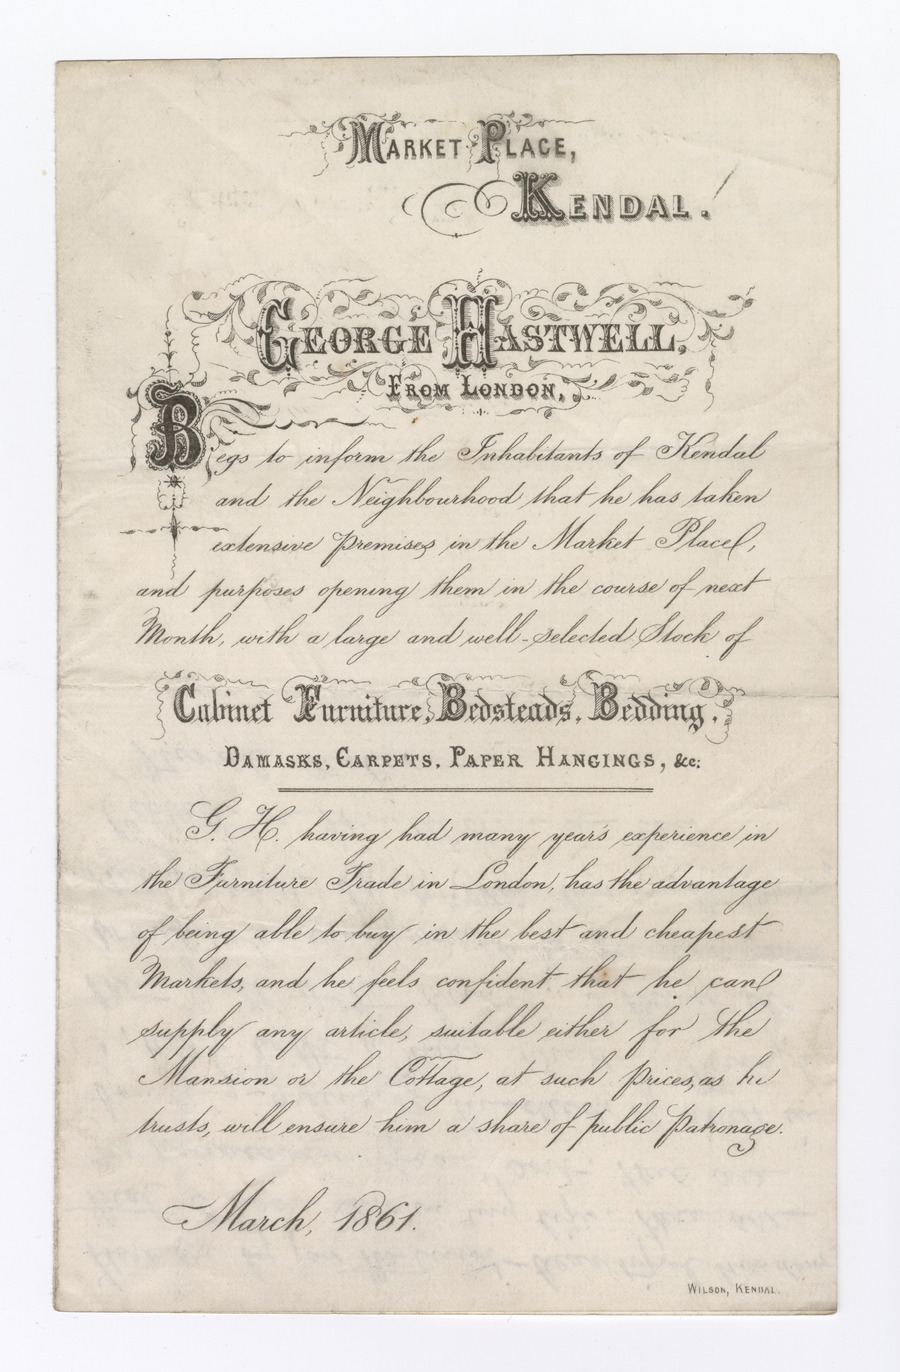 Market Place,
Kendal.
George Hastwell,
From London,
Begs to inform the Inhabitants of Kendal
and the Neighbourhood that he has taken
extensive Premises in the Market Place,
and purposes opening them in the course of next
Month, with a large and well-selected Stock of
Cabinet Furniture, Bedsteads, Bedding,
Damasks, Carpets, Paper Hangings, &c:
G. H. having had many year's experience in
the Furniture Trade in London, has the advantage
of being able to buy in the best and cheapest
Markets, and he feels confident that he can
supply any article, suitable either for the
Mansion or the Cottage, at such Prices, as he
trusts, will ensure him a share of public Patronage.
March, 1861.
Wilson, Kendal.